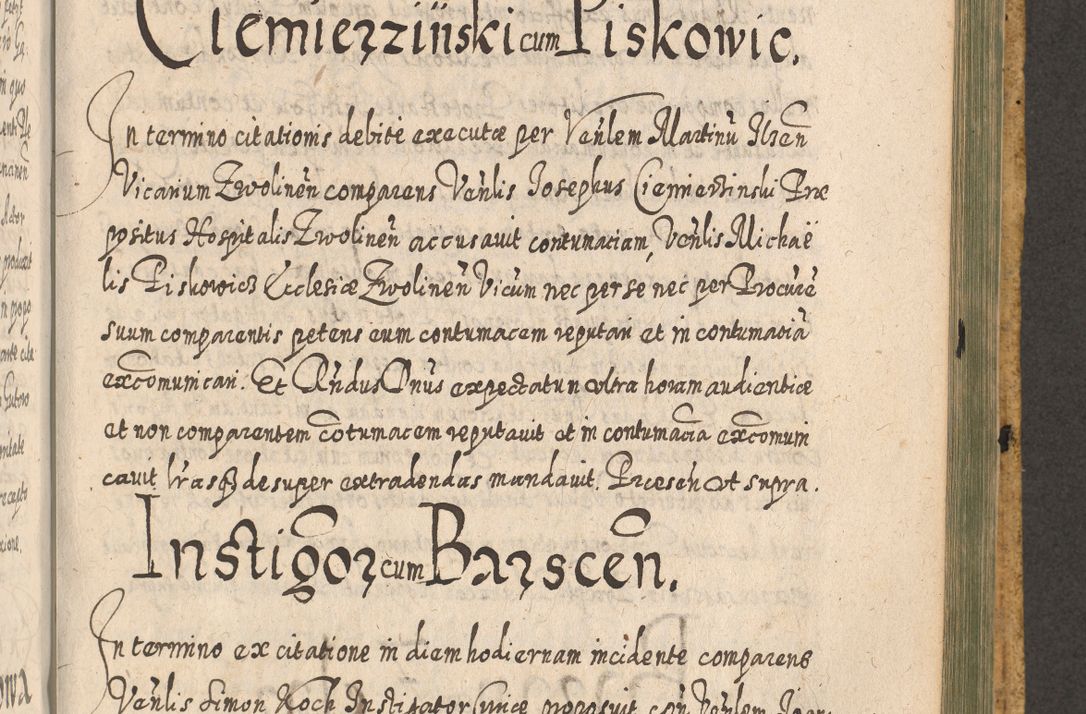 Ciemierzziński cum Piskowic.
In termino citationis debite executæ per Venlem Martinũ Ilzen̄
Vicarium Zwolinen̄ comparens Venlis Josephus Ciemierzinski Præ
positus Hospitalis Zwolinen̄ accusavit contumatiam, Venlis Michaë
lis Piskowicz Ecclesiæ Zwolinen̄ Vicum nec per se nec per Procura
suum comparentis petens eum contumacem reputari et in contumatiã
excõmunicari. Et Rñdus Dñus expectatum ultra horam audientiæ
et non comparentem cõtumacem reputavit et in contumacia excõmuni
cavit lr̃as desuper extradendas mandavit. Præsen ut supra.
Instigõr cum Barscen̄.
In termino ex citatione in diem hodiernam incidente comparens
Venlis Simon Koch Instigator proposuit con̄ Venlem Joan